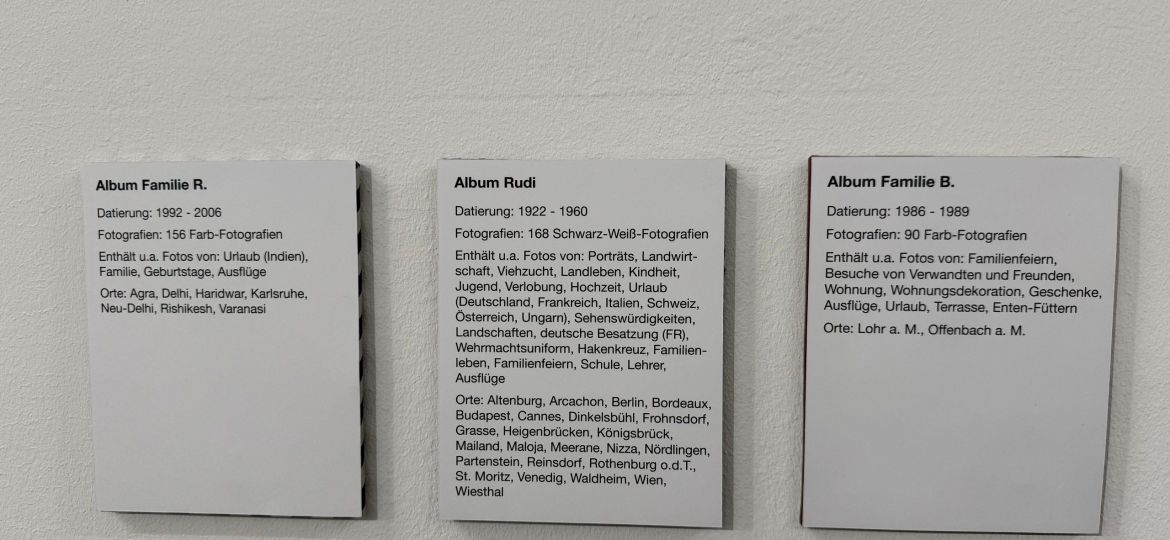 Album Familie R.
Datierung: 1992 - 2006
Fotografien: 156 Farb-Fotografien
Enthält u.a. Fotos von: Urlaub (Indien),
Familie, Geburtstage, Ausflüge
Orte: Agra, Delhi, Haridwar, Karlsruhe,
Neu-Delhi, Rishikesh, Varanasi
Album Rudi
Datierung: 1922 - 1960
Fotografien: 168 Schwarz-Weiß-Fotografien
Enthält u.a. Fotos von: Porträts, Landwirt-
schaft, Viehzucht, Landleben, Kindheit,
Jugend, Verlobung, Hochzeit, Urlaub
(Deutschland, Frankreich, Italien, Schweiz,
Österreich, Ungarn), Sehenswürdigkeiten,
Landschaften, deutsche Besatzung (FR),
Wehrmachtsuniform, Hakenkreuz, Familien-
leben, Familienfeiern, Schule, Lehrer,
Ausflüge
Orte: Altenburg, Arcachon, Berlin, Bordeaux,
Budapest, Cannes, Dinkelsbühl, Frohnsdorf,
Grasse, Heigenbrücken, Königsbrück,
Mailand, Maloja, Meerane, Nizza, Nördlingen,
Partenstein, Reinsdorf, Rothenburg o.d.T.,
St. Moritz, Venedig, Waldheim, Wien,
Wiesthal
Album Familie B.
Datierung: 1986 - 1989
Fotografien: 90 Farb-Fotografien
Enthält u.a. Fotos von: Familienfeiern,
Besuche von Verwandten und Freunden,
Wohnung, Wohnungsdekoration, Geschenke,
Ausflüge, Urlaub, Terrasse, Enten-Füttern
Orte: Lohr a. M., Offenbach a. M.